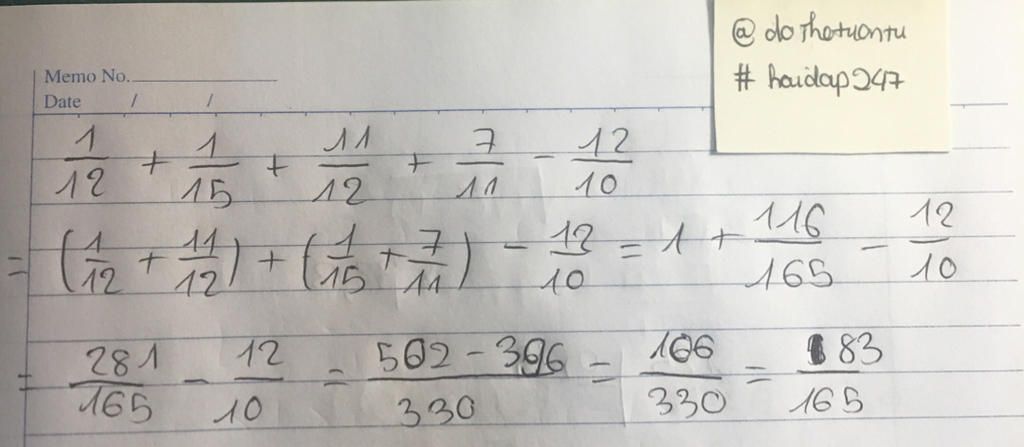 @ dothetuantu
# hoidap247
Memo No.
Date / /
1/12 + 1/15 + 11/12 + 7/11 - 12/10
= (1/12 + 11/12) + (1/15 + 7/11) - 12/10 = 1 + 116/165 - 12/10
= 281/165 - 12/10 = 562 - 396/330 = 166/330 = 83/165